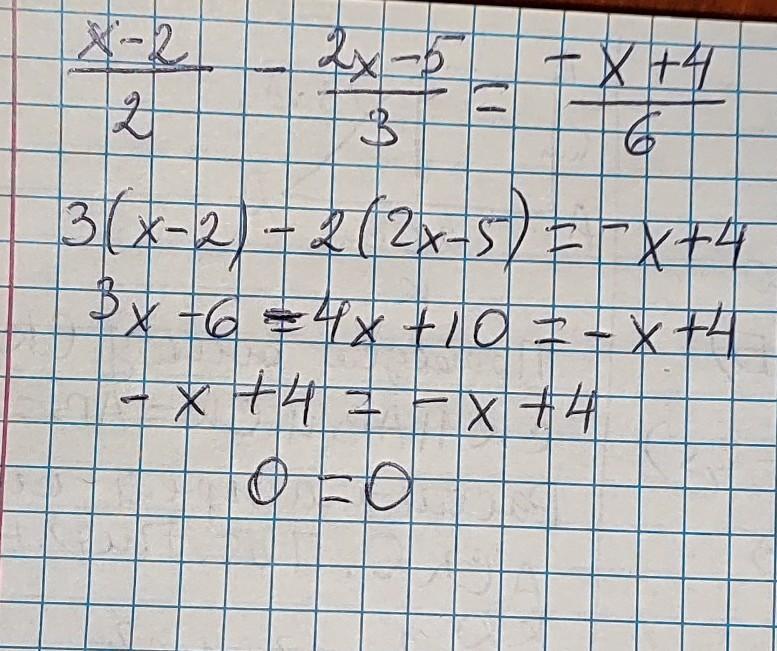 x-2/2 - 2x-5/3 = -x+4/6
3(x-2)-2(2x-5)=-x+4
3x-6-4x+10=-x+4
-x+4=-x+4
0=0